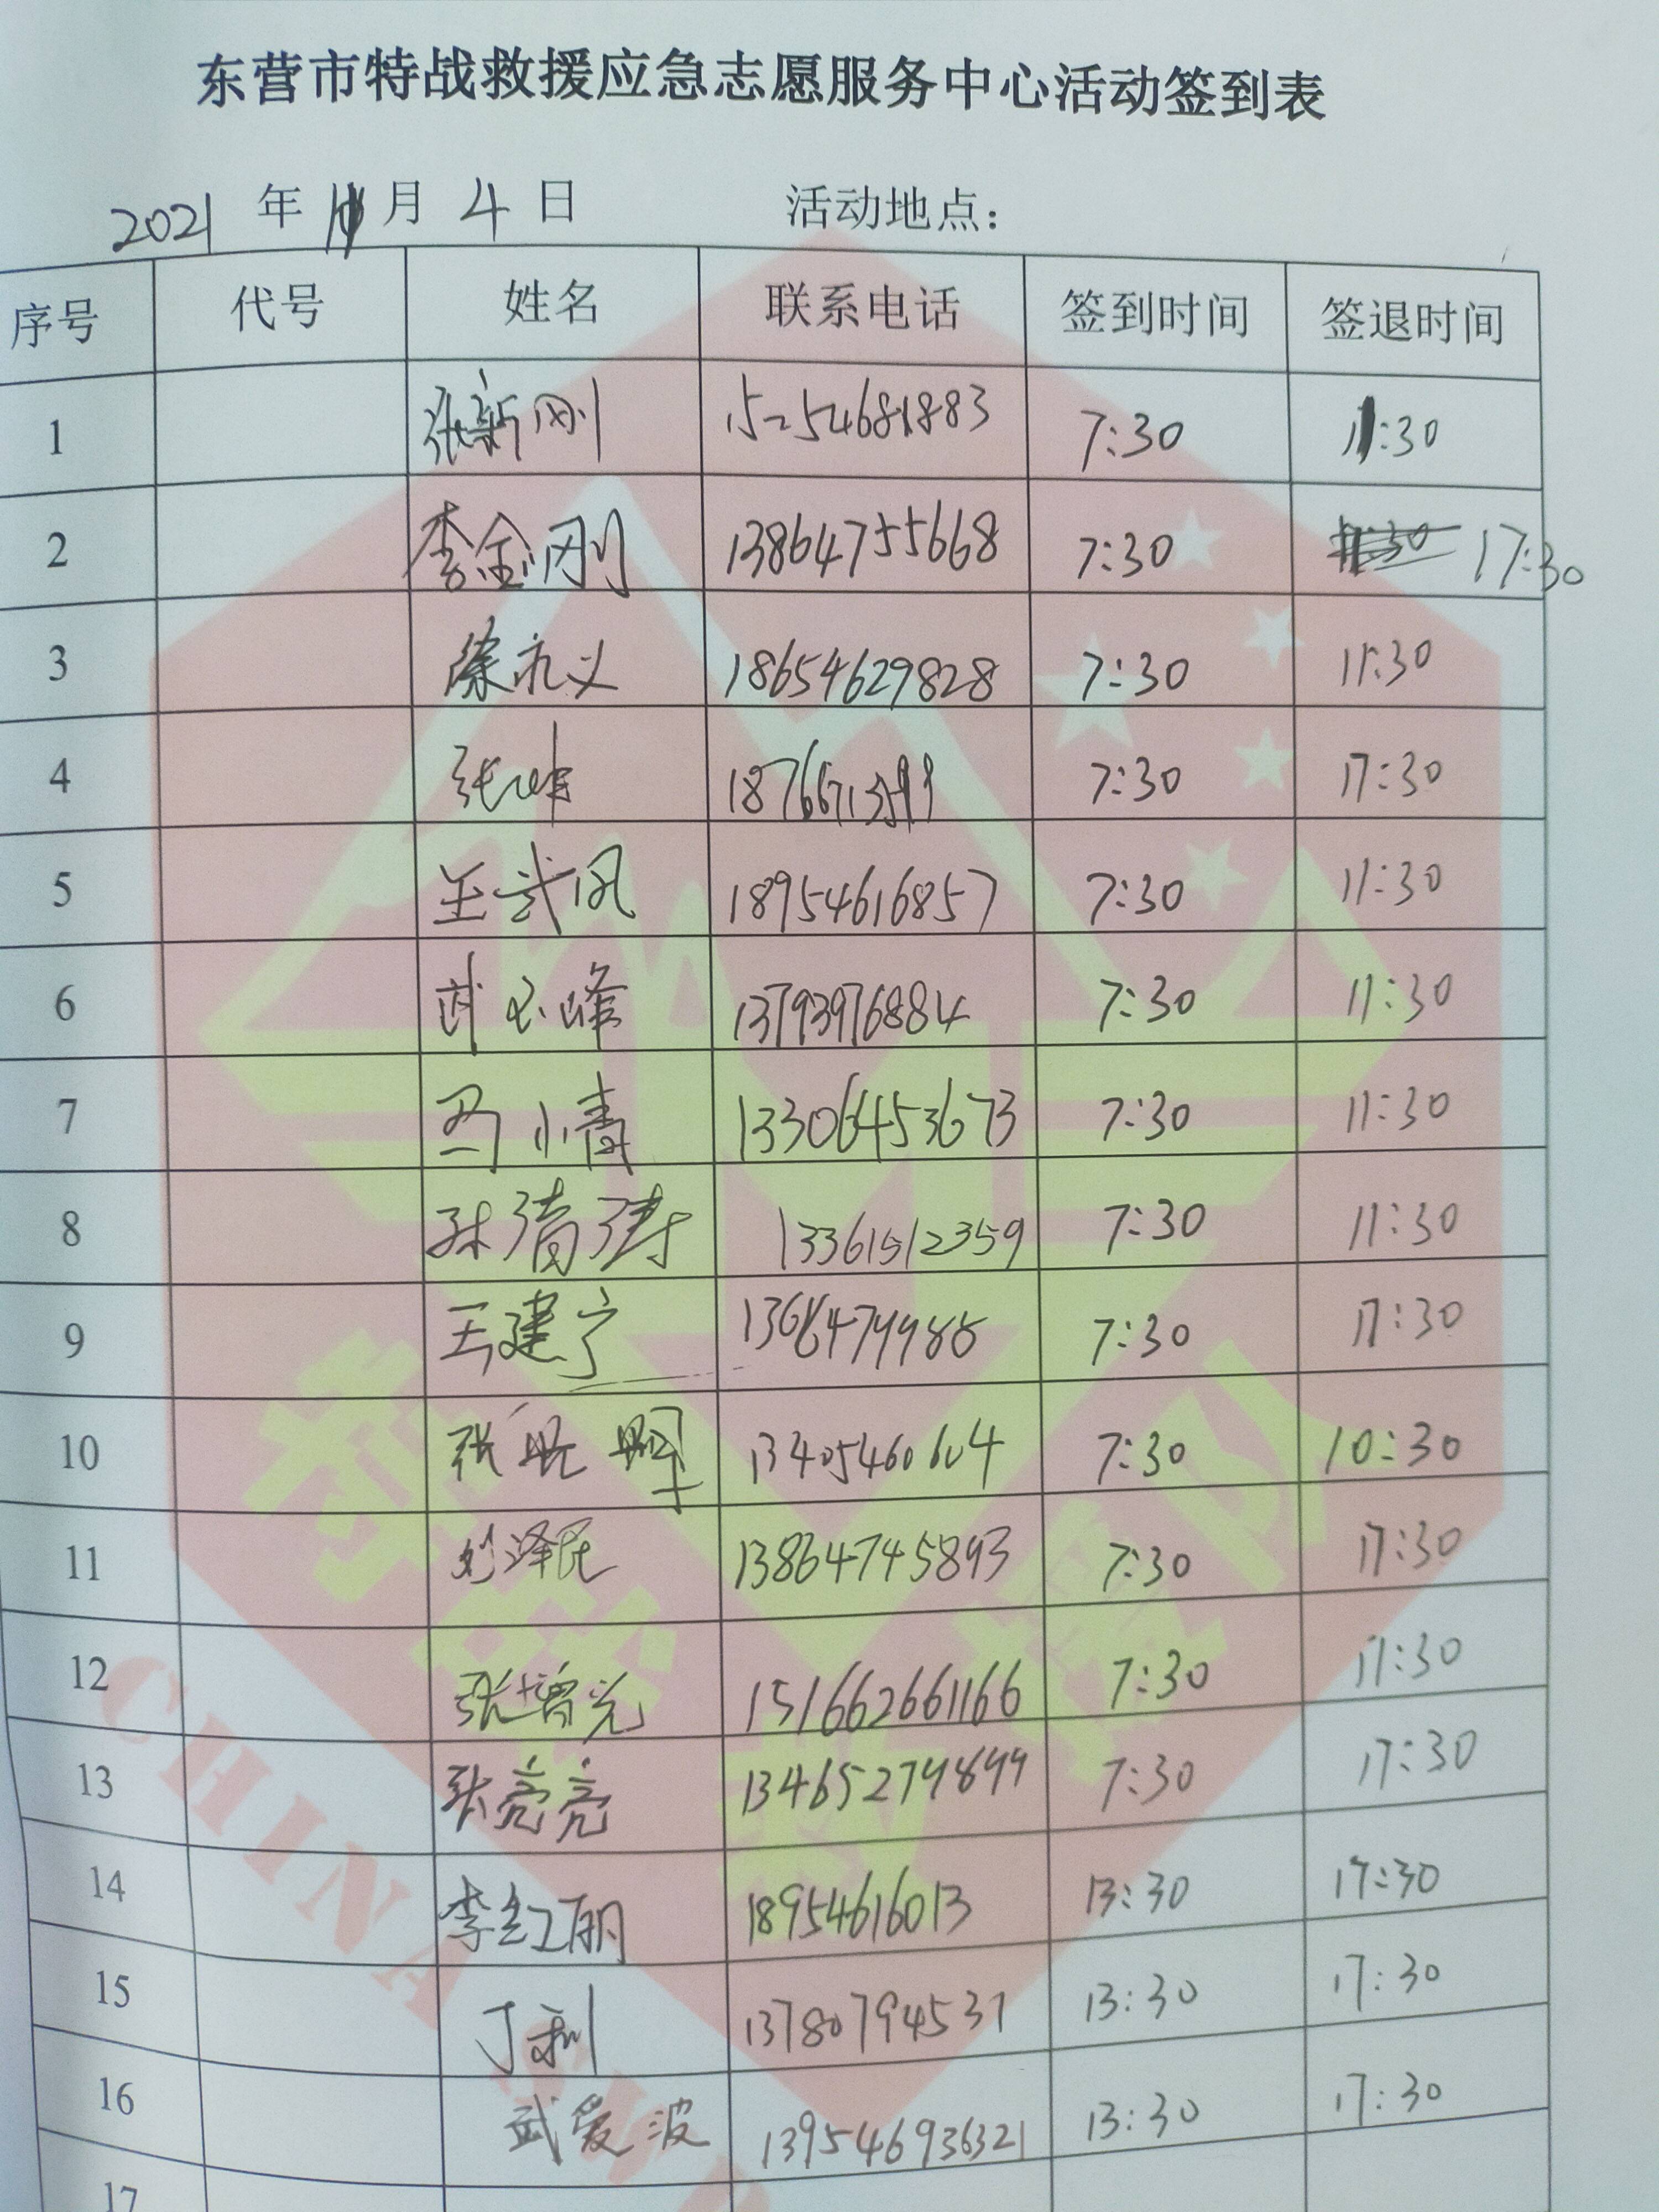 东营市特战救援应急志愿服务中心活动签到表
2021 年 月 4 日 活动地点：
序号 代号 姓名 联系电话 签到时间 签退时间
1 张新刚 15254681883 7:30 11:30
2 李金刚 13864755668 7:30 17:30
3 徐永义 18654629828 7:30 11:30
4 张峰 7:30 17:30
5 王武风 18954616857 7:30 11:30
6 武玉峰 13793976884 7:30 11:30
7 马小青 13306453673 7:30 11:30
8 孙清涛 13361512359 7:30 11:30
9 王建宁 7:30 17:30
10 张 13405460604 7:30 10:30
11 刘泽民 13864745893 7:30 17:30
12 张增光 151662661166 7:30 17:30
13 张亮亮 7:30 17:30
14 李红丽 18954616013 13:30 17:30
15 丁利 13780794531 13:30 17:30
16 武爱波 139546936321 13:30 17:30
17
CHINA